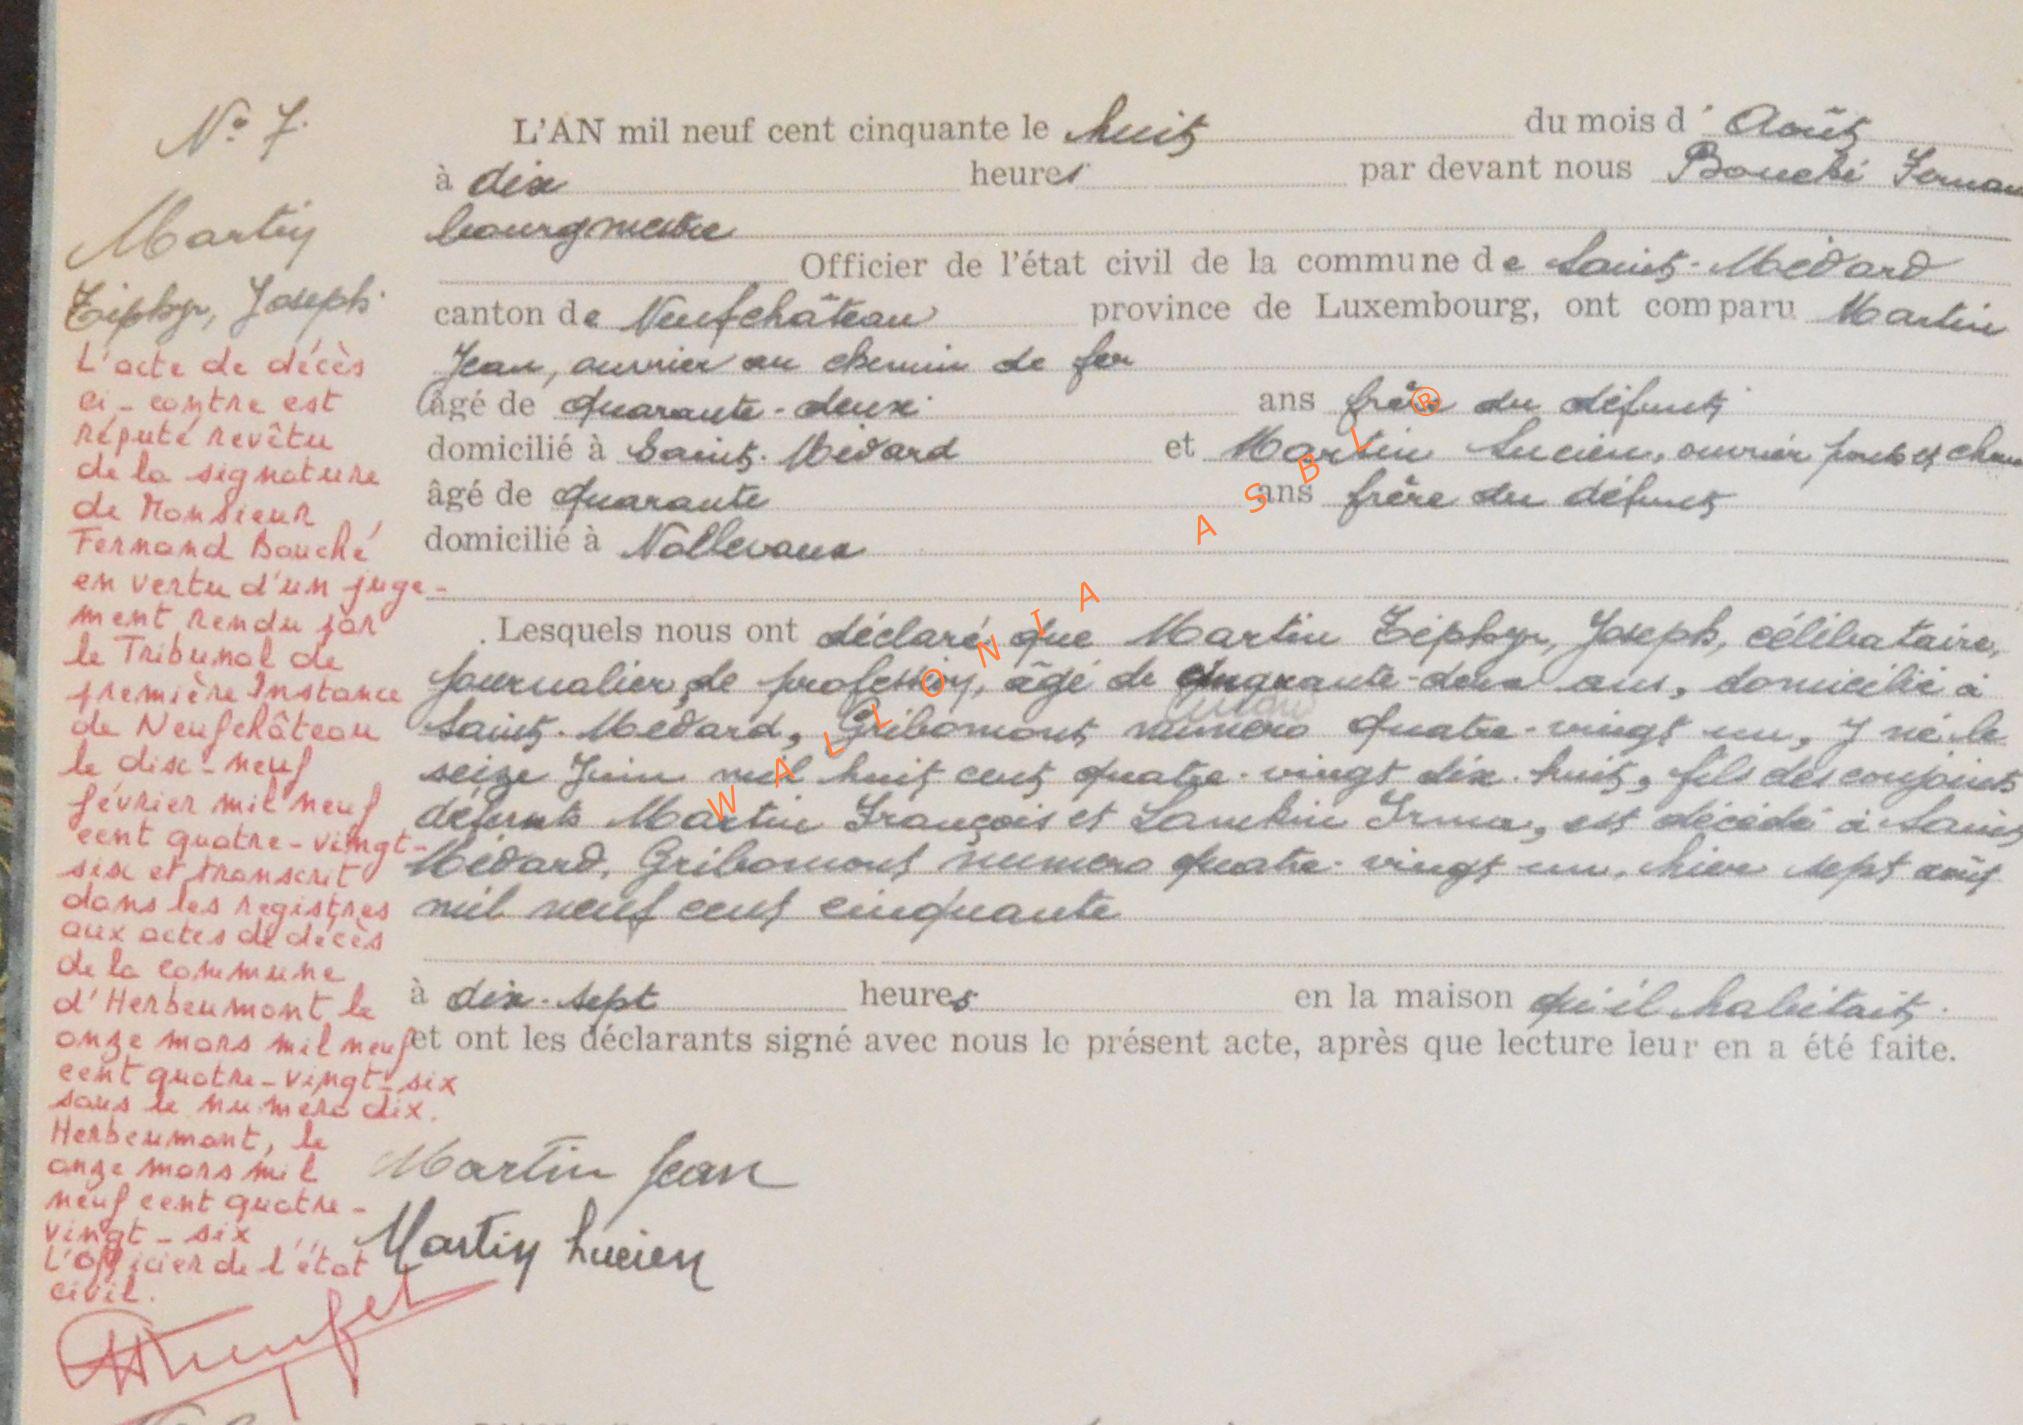 N° 7.
Martin
Zéphyr, Joseph.
L'acte de décès
ci-contre est
réputé revêtu
de la signature
de Monsieur
Fernand Bouché
en vertu d'un juge-
ment rendu par
le Tribunal de
première Instance
de Neufchâteau
le dix-neuf
février mil neuf
cent quatre-vingt-
six et transcrit
dans les registres
aux actes de décès
de la commune
d'Herbeumont le
onze mars mil neuf
cent quatre-vingt-six
sous le numéro dix.
Herbeumont, le
onze mars mil
neuf cent quatre-
vingt-six
L'Officier de l'état
civil.
L'AN mil neuf cent cinquante le huit du mois d'Août
à dix heures par devant nous Bouché
bourgmestre
Officier de l'état civil de la commune de Saint-Médard
canton de Neufchâteau province de Luxembourg, ont comparu Martin
Jean, ouvrier au chemin de fer
âgé de quarante-deux ans frère du défunt
domicilié à Saint-Médard et Martin Lucien, ouvrier ponts et
âgé de quarante ans frère du défunt
domicilié à Nollevaux
Lesquels nous ont déclaré que Martin Zéphyr, Joseph, célibataire,
journalier de profession, âgé de cinquante-deux ans, domicilié à
Saint-Médard, Gribomont numéro quatre-vingt un, y né le
seize Juin mil huit cent quatre-vingt dix-huit, fils des conjoints
défunts Martin François et Lambin Irma, est décédé à Saint
Médard, Gribomont numéro quatre-vingt un, hier sept août
mil neuf cent cinquante
à dix-sept heures en la maison qu'il habitait.
et ont les déclarants signé avec nous le présent acte, après que lecture leur en a été faite.
Martin Jean
Martin Lucien
WALLONIA ASBL ®